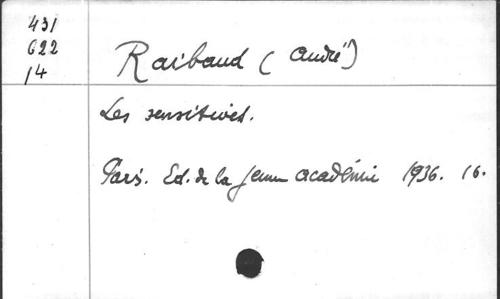 431
622
14
Raibaud (André)
Les sensitives.
Paris. Ed. de la Jeune académie 1936. 16.